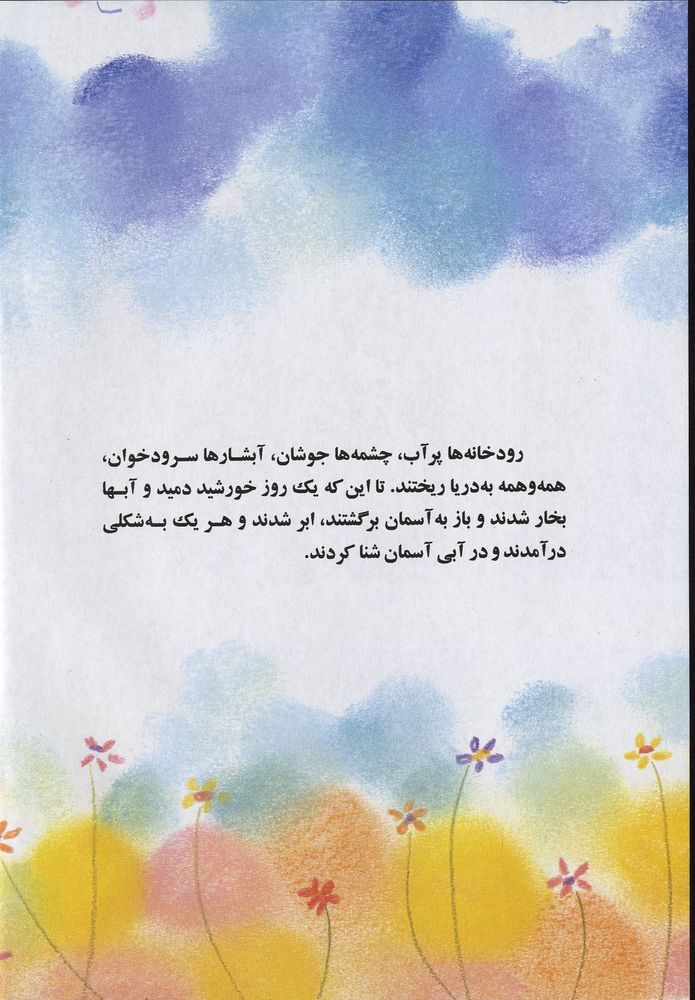 رودخانه‌ها پرآب، چشمه‌ها جوشان، آبشارها سرودخوان،
همه‌وهمه به‌دریا ریختند. تا این که یک روز خورشید دمید و آبها
بخار شدند و باز به آسمان برگشتند، ابر شدند و هر یک به‌شکلی
درآمدند و در آبی آسمان شنا کردند.